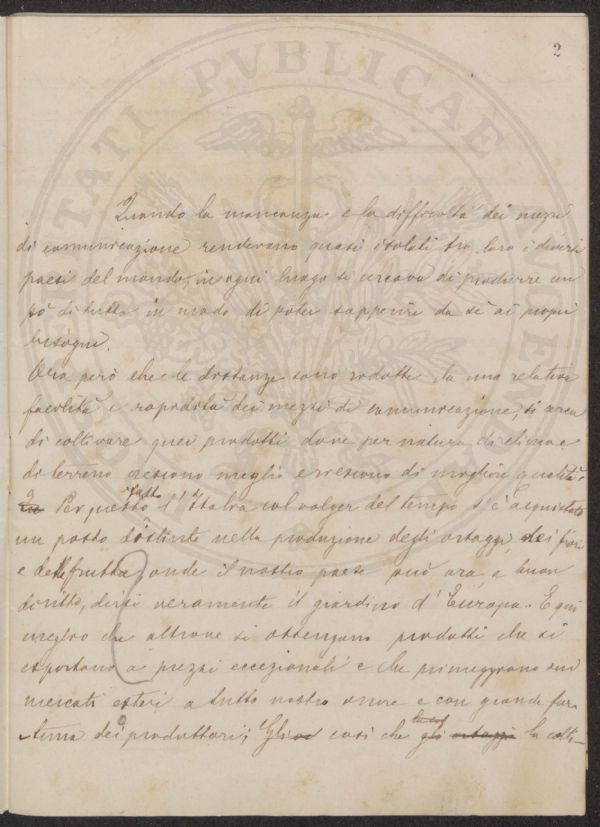 2
Quando la mancanza e la difficoltà dei mezzi
di comunicazione rendevano quasi isolati tra loro i diversi
paesi del mondo, in ogni luogo si cercava di produrre un
pò di tutto in modo di poter sopperire da sè ai propri
bisogni.
Ora però che le distanze sono ridotte da una relativa
facilità e rapidità dei mezzi di comunicazione, si cerca
di coltivare quei prodotti dove per natura di clima e
di terreno crescono meglio e riescono di migliore qualità.
Per questo fatto l'Italia col volger del tempo s'è acquistato
un posto distinto nella produzione degli ortaggi, dei fiori
e delle frutta, onde il nostro paese può ora, a buon
diritto, dirsi veramente il giardino d'Europa. E qui
meglio che altrove si ottengono prodotti che si
esportano a prezzi eccezionali e che primeggiano sui
mercati esteri a tutto nostro onore e con grande for-
tuna dei produttori; così che gli ortaggi la colti-